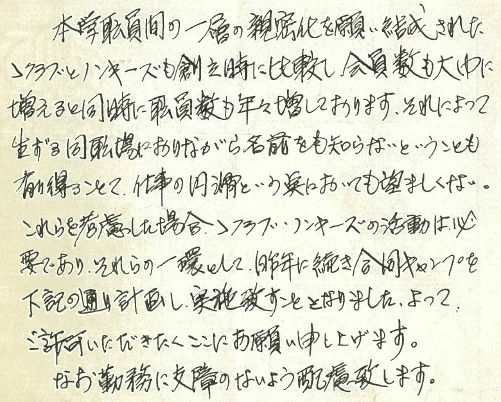 本学職員間の一層の親密化を願い結成された
クラブとノンキーズも創立時に比較し、会員数も大巾に
増えると同時に職員数も年々増しております。それによって
生ずる同職場にありながら名前をも知らないということも
有り得ることで、仕事の円滑という点においても望ましくない。
これらを考慮した場合、クラブ・ノンキーズの活動は必
要であり、それらの一環として、昨年に続き合同キャンプを
下記の通り計画し、実施致すこととなりました。よって、
ご許可いただきたくここにお願い申し上げます。
なお勤務に支障のないよう配慮致します。